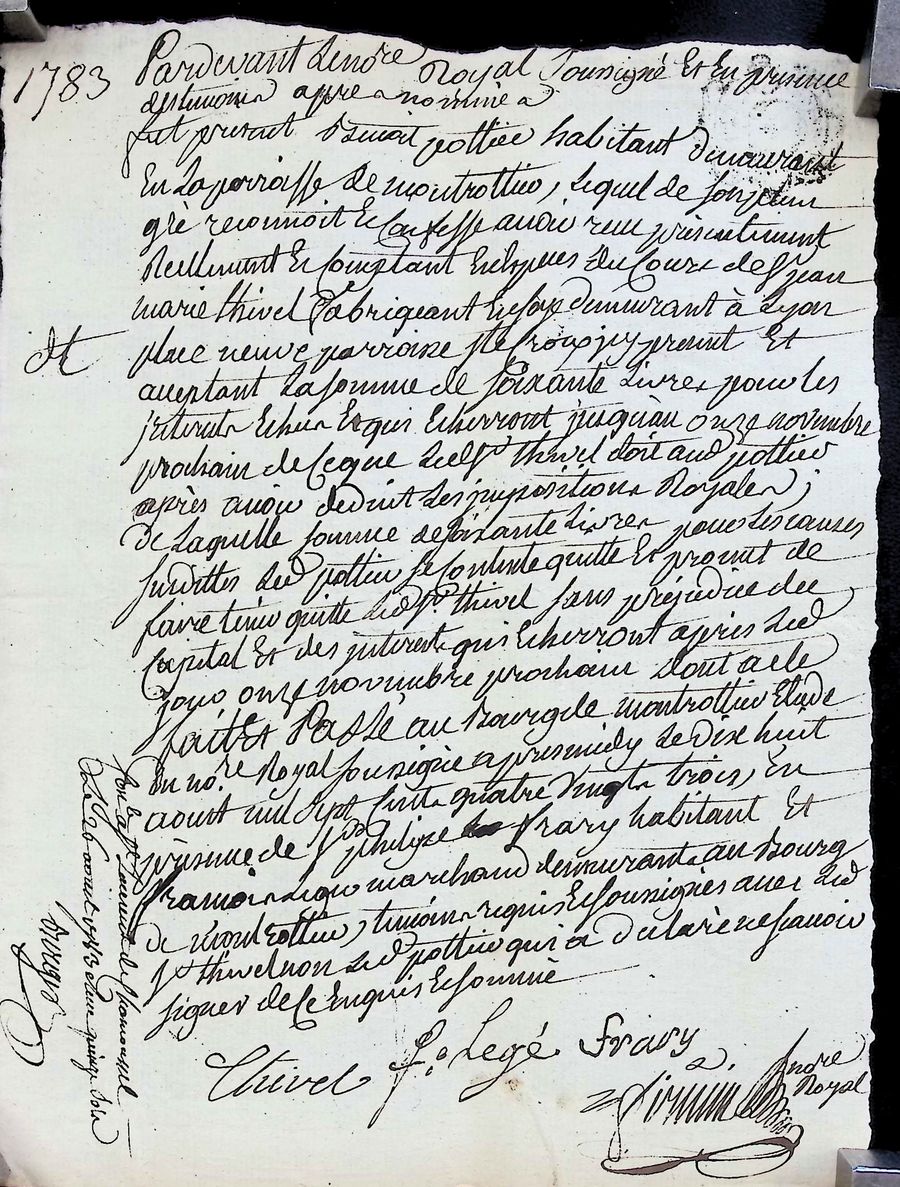 1783
Pardevant Lenore Royal Soussigné Et En presence
destemoins apres nommés
fut present Benoit pottier habitant demeurant
En Laparroisse de montrottier, Lequel de son plein
gré reconnoit Et Confesse avoir reçu présentement
Reellement Et Comptant En Especes du Cours de Sr jean
marie thivel fabrigeant En soye demeurant à Lyon
place neuve parroisse Ste Croix icy present Et
acceptant La somme de soixante Livres pour les
jnterets Echus Et qui Echerront jusqu'au onze novembre
prochain de Ceque Led Sr thivel doit aud pottier
après avoir deduit Les jmpositions Royales ;
de Laquelle somme de soixante Livres pour Les causes
susdittes Led pottier se Contente quitte Et promet de
faire tenir quitte Led Sr thivel sans préjudice du
Capital Et des jnterets qui Echerront après Led
jour onze novembre prochain dont acte
fait Et Passé au Bourg de montrottier Etude
du nore Royal soussigné apres midy Le dix huit
aoust mil sept Cent quatre vingt trois, En
présence de Sr philipe Frary habitant Et
françois marchand demeurants au Bourg
de montrottier, temoins requis Et soussignés avec Led
Sr thivel non Led pottier qui a déclaré ne sçavoir
signer de Ce Enquis Et sommé
Thivel
f. Legé
Frary
nore
Royal
dt
Con
Le 26 aoust 1783 Reçu quinze sols